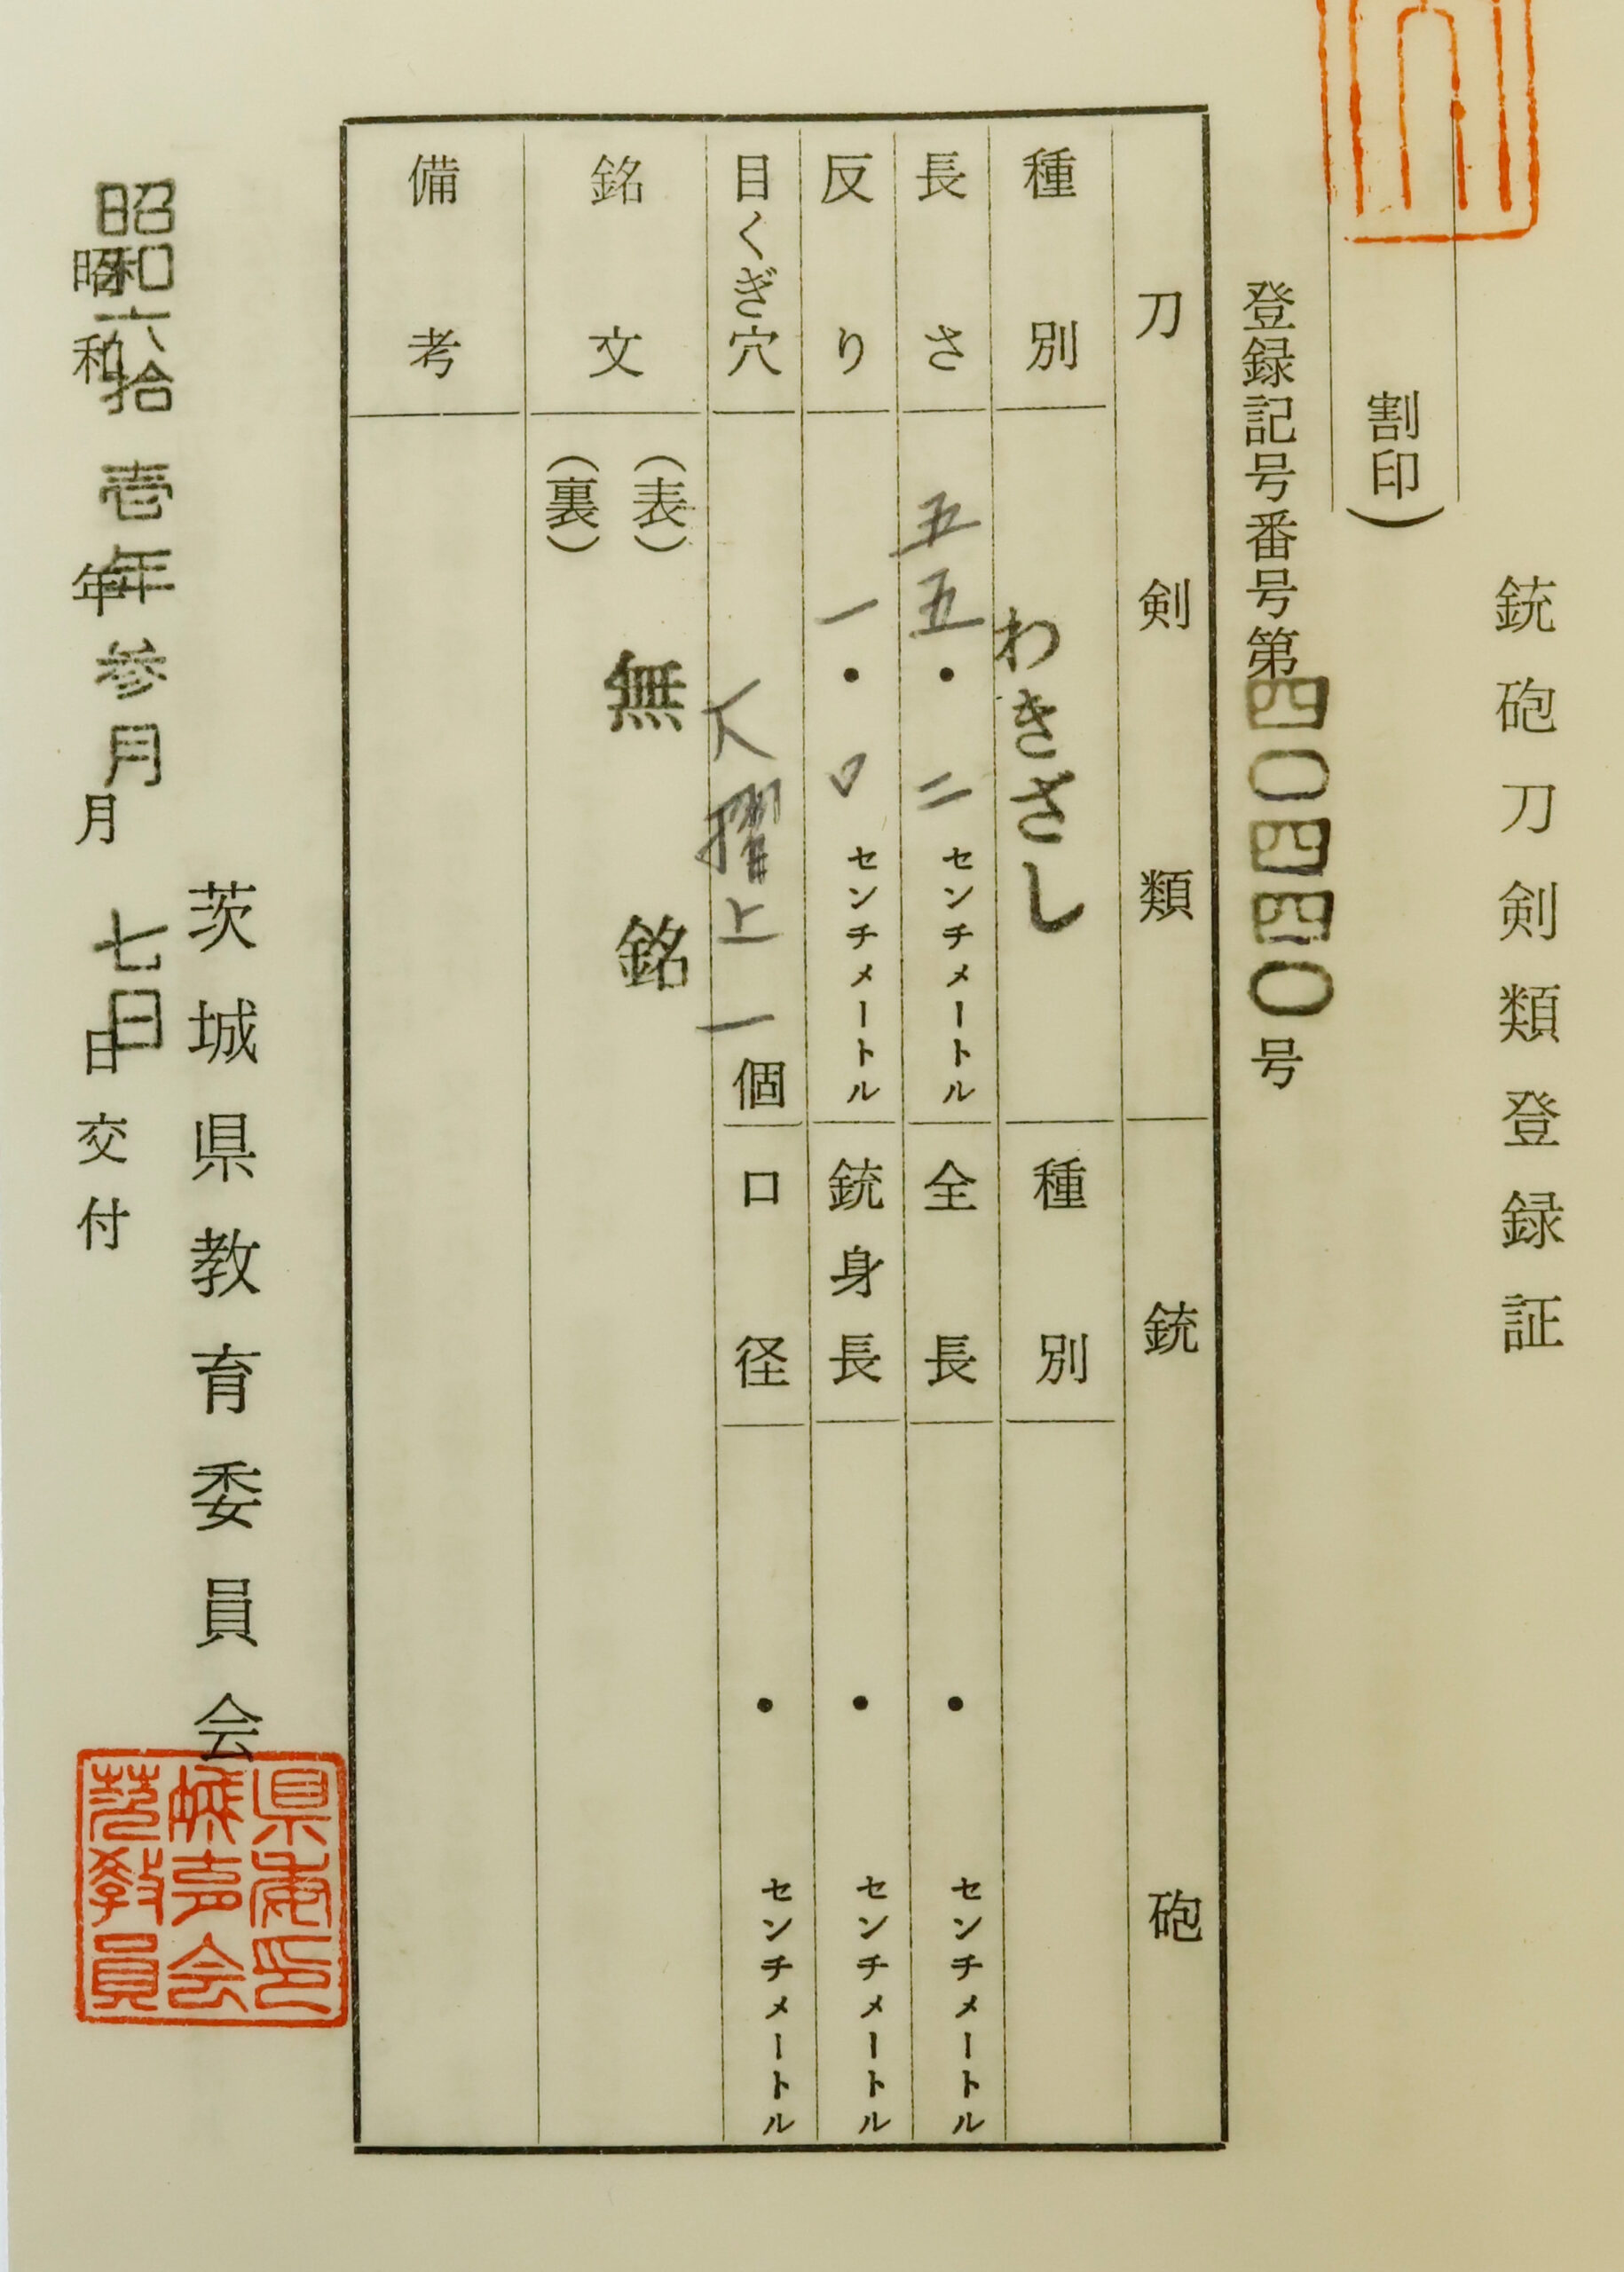 銃砲刀剣類登録証
(割印)
登録記号番号第四〇四四〇号
刀剣類
銃砲
種別
わきざし
種別
長さ
五五・二センチメートル
全長
・センチメートル
反り
一・〇センチメートル
銃身長
・センチメートル
目くぎ穴
上一個
口径
・センチメートル
銘文
(表)
(裏)
無銘
備考
茨城県教育委員会
昭和六拾壱年参月七日
昭和年月日交付
茨城県
教育委
員会印